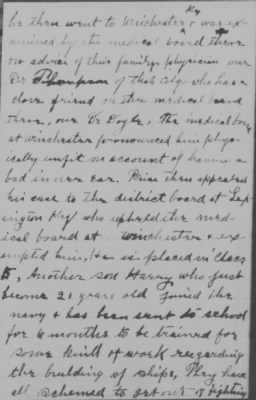 he then went to Winchester Ky & was ex-
amined by the medical board there
on advice of their family physician one
Dr Thompson of that city who has a
close friend on the medical board
there, one Dr Doyle, the medical board
at Winchester pronounced him phys-
ically unfit on account of having a
bad inner ear. then appealed
his case to the district board at Lex-
ington Ky who upheld the med-
ical board at Winchester & ex-
empted him, He is placed in Class
5, Another son Harry who just
become 21 years old joined the
navy & has been sent to school
for 6 months to be trained for
some kind of work regarding
the building of ships, They have
all schemed to get out of fighting